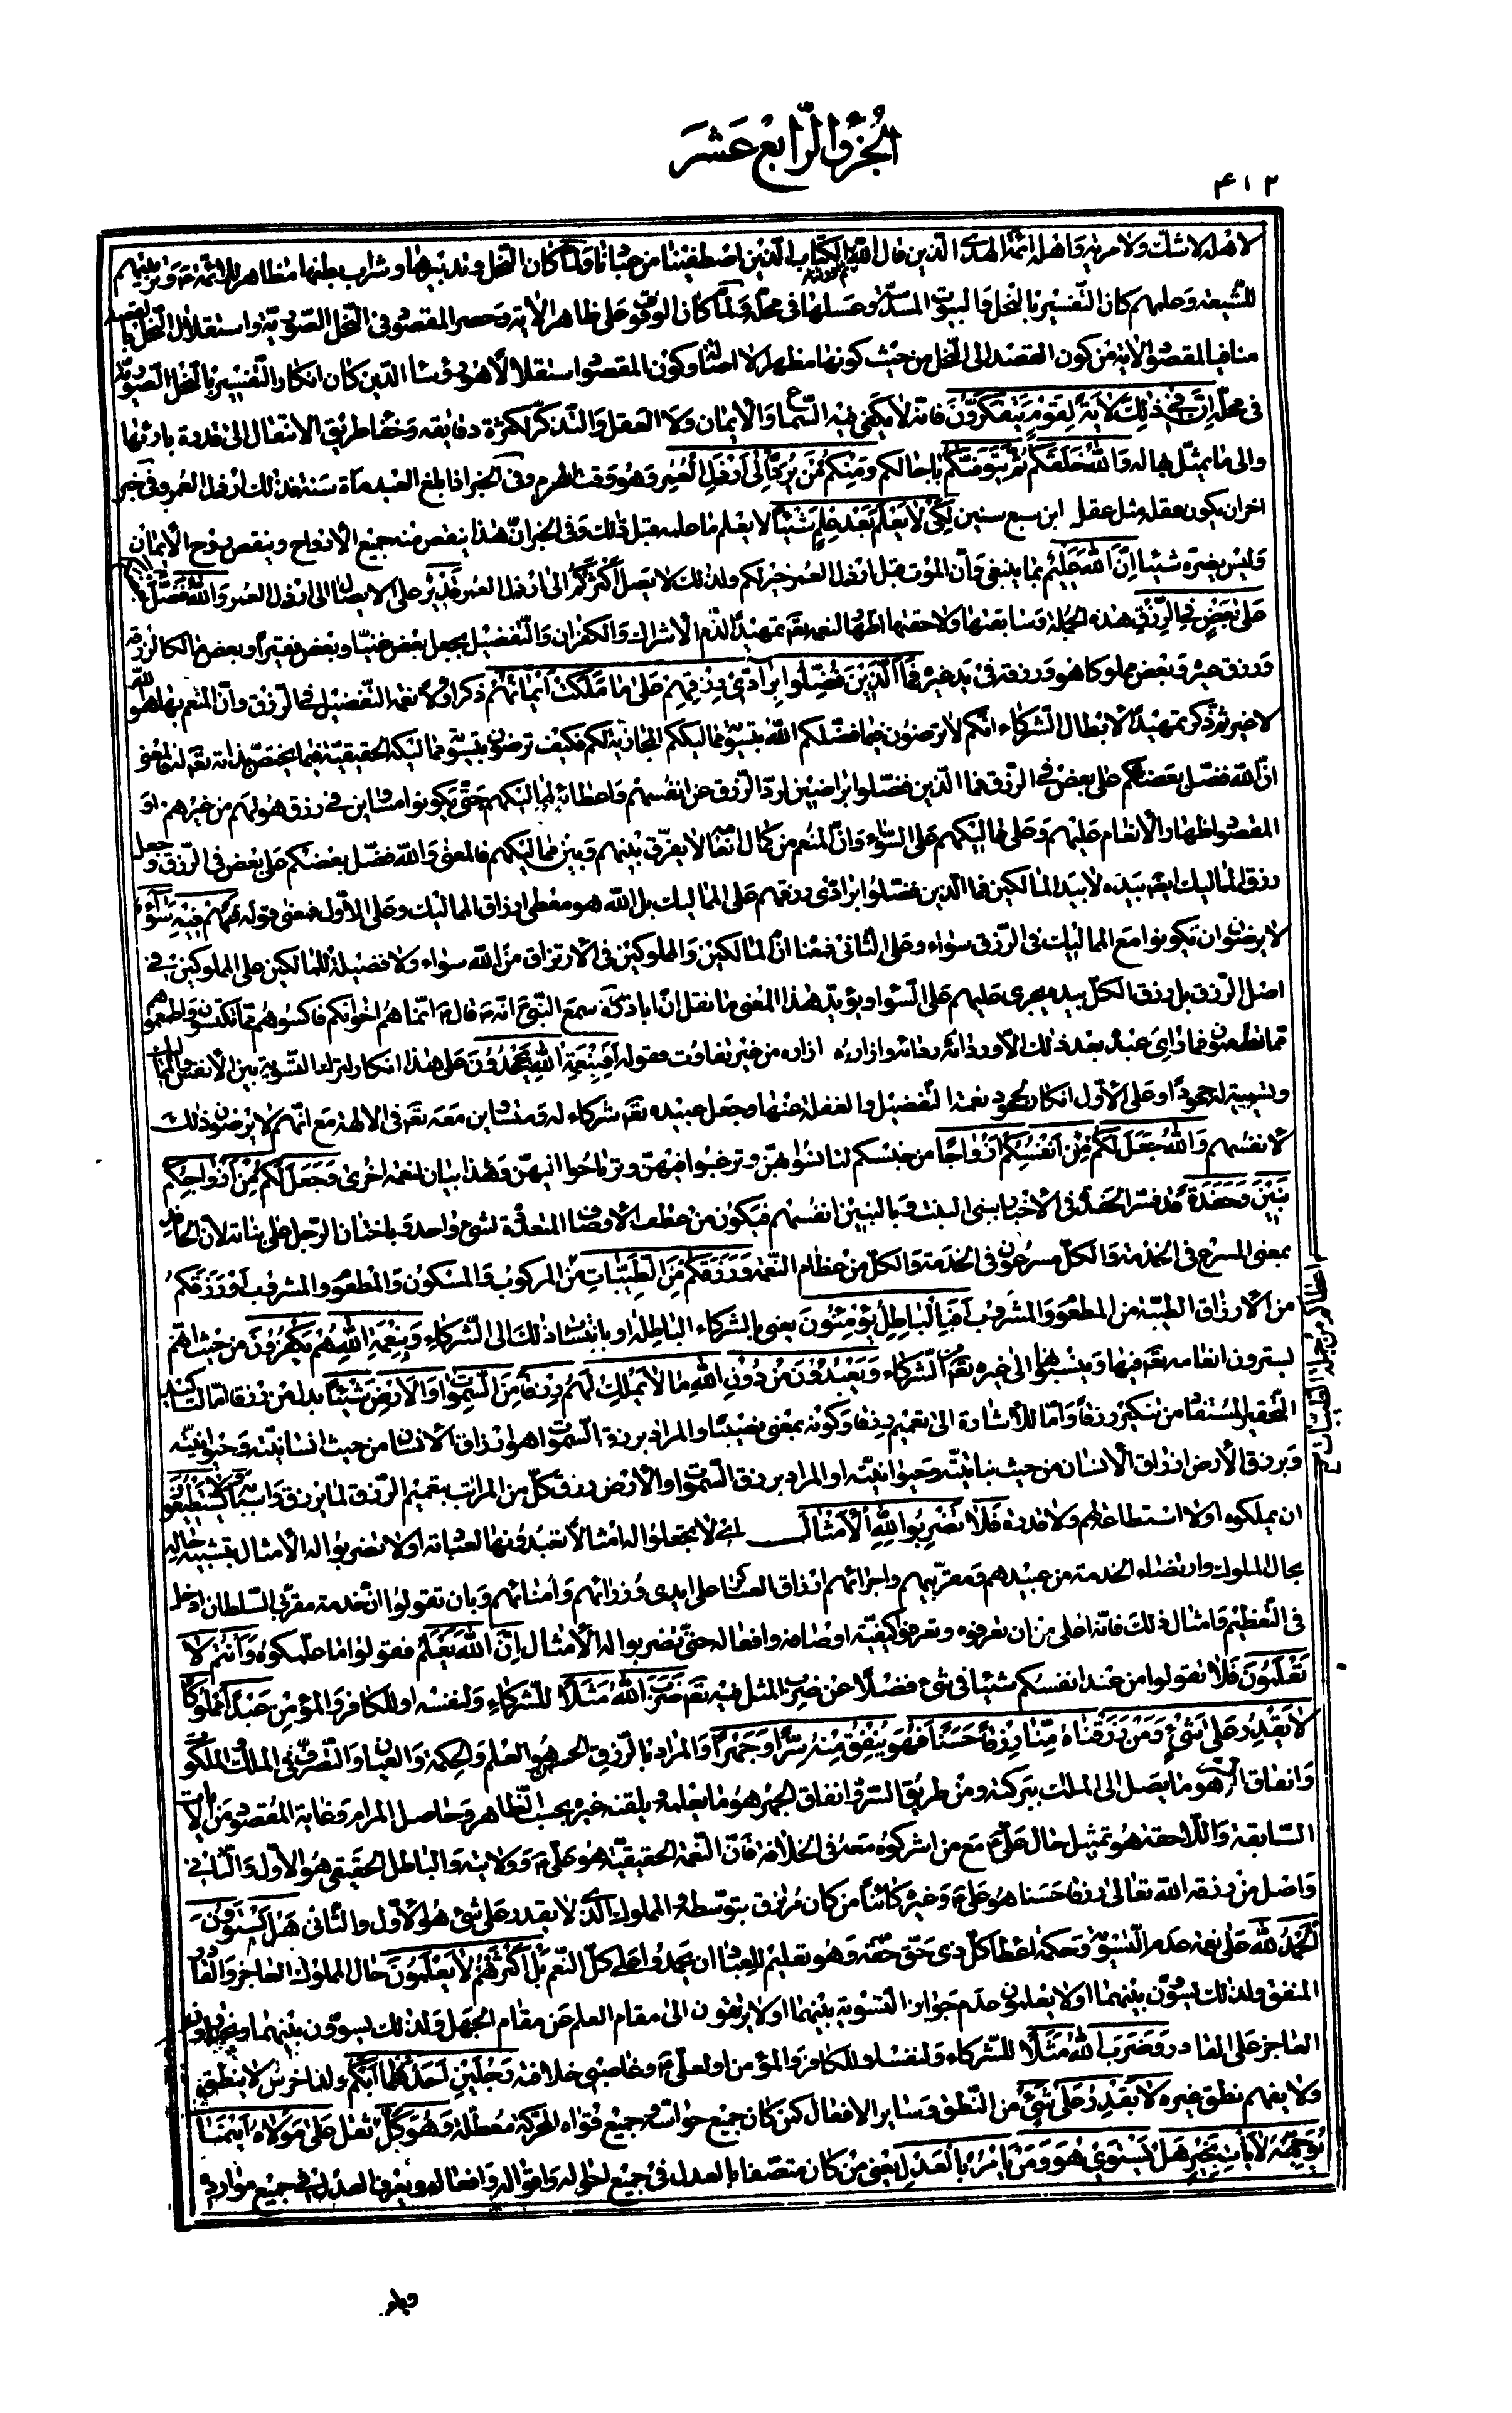 الجزء الرابع عشر
٤١٢
لاهله لا شك ولا مرية واهله ائمة الهدى الذين قال الله ثم اورثنا الكتاب الذين اصطفينا من عبادنا ولما كان النحل وتدبيرها وشراب بطنها مظاهر للائمة وتربيتهم
للشيعة وعلمهم كان التفسير بالنحل والبيوت المسدسة وعسلها في محله ولما كان الوقوف على ظاهر الاية وحصر المقصود في النحل الصورية واستقلال النحل بالقصد
منافيا لمقصود الاية من كون القصد الى النحل من حيث كونها مظهرا لا اصالة وكون المقصود استقلالا هو رؤساء الدين كان انكار التفسير بالنحل الصورية
في محله إِنَّ فِي ذٰلِكَ لَآيَةً لِقَوْمٍ يَتَفَكَّرُونَ فانه لا يكفي فيه السماع والايمان ولا العقل والتذكر لكثرة دقايقه وخفاء طريق الانتقال الى قدرة بارئها
والى ما يمثل بها له وَاللّٰهُ خَلَقَكُمْ ثُمَّ يَتَوَفّٰكُمْ باجالكم وَمِنْكُمْ مَنْ يُرَدُّ إِلىٰ أَرْذَلِ الْعُمُرِ وهو وقت الهرم وفي الخبر اذا بلغ العبد مأة سنة فذلك ارذل العمر وفي خبر
اخر ان يكون عقله مثل عقل ابن سبع سنين لِكَيْ لَا يَعْلَمَ بَعْدَ عِلْمٍ شَيْئًا لا يعلم ما علمه قبل ذلك وفي الخبر ان هذا ينقص منه جميع الارواح وينقص روح الايمان
وليس يضره شيئا إِنَّ اللّٰهَ عَلِيمٌ بما ينبغي وان الموت قبل ارذل العمر خير لكم ولذلك لا يصل اكثركم الى ارذل العمر قَدِيرٌ على الايصال الى ارذل العمر وَاللّٰهُ فَضَّلَ بَعْضَكُمْ
عَلىٰ بَعْضٍ فِي الرِّزْقِ هذه الجملة وسابقتها ولاحقتها اظهار النعمة تعالى تمهيدا لذم الاشراك والكفران والتفضيل بجعل بعض غنيا وبعض فقيرا وبعض مالكا لرزقه
ورزق غيره وبعض مملوكا هو ورزقه في يد غيره فَمَا الَّذِينَ فُضِّلُوا بِرَادِّي رِزْقِهِمْ عَلىٰ مَا مَلَكَتْ أَيْمَانُهُمْ ذكر اولا نعمة التفضيل في الرزق وان المنعم بها هو الله
لا غير ثم ذكر تمهيدا لابطال الشركاء انكم لا ترضون فيما فضلكم الله بتسوية مماليككم المجازية لكم فكيف ترضون بتسوية مماليكه الحقيقية فيما يختص بذاته تعالى له فالمعنى
ان الله فضل بعضكم على بعض في الرزق فما الذين فضلوا براضين لرد الرزق عن انفسهم واعطائه لمماليكهم حتى يكونوا متساوين في رزق هو لهم من غيرهم او
المقصود اظهار الانعام عليهم وعلى مماليكهم على السواء وان المنعم من كمال انعامه لا يفرق بينهم وبين مماليكهم فالمعنى والله فضل بعضكم على بعض في الرزق وجعل
رزق المماليك ايضا بيده لا بيد المالكين فما الذين فضلوا برادي رزقهم على المماليك بل الله هو معطي ارزاق المماليك وعلى الاول فمعنى قوله فَهُمْ فِيهِ سَوَاءٌ
لا يرضون ان يكونوا مع المماليك في الرزق سواء وعلى الثاني فمعناه ان المالكين والمملوكين في الارتزاق من الله سواء ولا فضيلة للمالكين على المملوكين في
اصل الرزق بل رزق الكل بيده يجرى عليهم على السواء ويؤيد هذا المعنى ما نقل ان اباذر سمع النبي ص انه قال انما هم اخوانكم فاكسوهم مما تكتسون واطعموهم
مما تطعمون فما رأى عبده بعد ذلك الا ورداؤه رداؤه وازاره ازاره من غير تفاوت فقوله أَفَبِنِعْمَةِ اللّٰهِ يَجْحَدُونَ على هذا انكار لترك التسوية بين الانفس والمماليك
وتسميته له جحودا وعلى الاول انكار لجحود نعمة التفضيل والغفلة عنها وجعل عبيده تعالى شركاء له ومتساوين معه تعالى في الالهة مع انهم لا يرضون ذلك
لانفسهم وَاللّٰهُ جَعَلَ لَكُمْ مِنْ أَنْفُسِكُمْ أَزْوَاجًا من جنسكم لتأنسوا بهن وترغبوا فيهن وترتاحوا اليهن وهذا بيان لنعمة اخرى وَجَعَلَ لَكُمْ مِنْ أَزْوَاجِكُمْ
بَنِينَ وَحَفَدَةً قد فسر الحفدة في الاخبار ببني البنت وبالبنين انفسهم فيكون من عطف الاوصاف المتعددة لشئ واحد وباختان الرجل على بناته لان الحافد
بمعنى المسرع في الخدمة والكل مسرعون في الخدمة والكل من عظام النعمة وَرَزَقَكُمْ مِنَ الطَّيِّبَاتِ من المركوب والمسكون والمطعوم والمشروب او رزقكم
من الارزاق الطيبة من المطعوم والمشروب أَفَبِالْبَاطِلِ يُؤْمِنُونَ يعنى بالشركاء الباطلة او بانتساب ذلك الى الشركاء وَبِنِعْمَةِ اللّٰهِ هُمْ يَكْفُرُونَ من حيث انهم
يسترون انعامه تعالى فيها وينسبونها الى غيره تعالى من الشركاء وَيَعْبُدُونَ مِنْ دُونِ اللّٰهِ مَا لَا يَمْلِكُ لَهُمْ رِزْقًا مِنَ السَّمٰوَاتِ وَالْأَرْضِ شَيْئًا بدل من رزقا اما لتأكيد
التحقير المستفاد من تنكير رزقا واما للاشارة الى تعميم رزقا وكونه بمعنى نصيبا والمراد برزق السموات هو ارزاق الانسان من حيث انسانيته وحيوانيته
وبرزق الارض ارزاق الانسان من حيث نباتيته وحيوانيته او المراد برزق السموات والارض رزق كل من المراتب بتعميم الرزق لما يرزق واسبابه وَلَا يَسْتَطِيعُونَ
ان يملكوه او لا استطاعة لهم ولا قدرة فَلَا تَضْرِبُوا لِلّٰهِ الْأَمْثَالَ اى لا تجعلوا له امثالا تعبدونها لعباداته او لا تضربوا له الامثال بتشبيه حاله
بحال الملوك وارتضاء الخدمة من عبيدهم ومقربيهم واجرائهم ارزاق العساكر على ايدى وزرائهم وامنائهم وبان تقولوا ان خدمة مقربي السلطان ادخل
في التعظيم وامثال ذلك فانه اعلى من ان تعرفوه وتعرفوا كيفية اوصافه وافعاله حتى تضربوا له الامثال إِنَّ اللّٰهَ يَعْلَمُ فقولوا ما علمكموه وَأَنْتُمْ لَا
تَعْلَمُونَ فلا تقولوا من عند انفسكم شيئا في شئ فضلا عن ضرب المثل فيه تعالى ضَرَبَ اللّٰهُ مَثَلًا للشركاء ولنفسه او للكافر والمؤمن عَبْدًا مَمْلُوكًا
لَا يَقْدِرُ عَلىٰ شَيْءٍ وَمَنْ رَزَقْنَاهُ مِنَّا رِزْقًا حَسَنًا فَهُوَ يُنْفِقُ مِنْهُ سِرًّا وَجَهْرًا والمراد بالرزق الحسن هو العلم والحكمة والعيان والتصرف في الملك والملكوت
وانفاق السر هو ما يصل الى الملك ببركته ومن طريق السر وانفاق الجهر هو ما يعلمه ويلقنه غيره بحسب الظاهر وحاصل المرام وغاية المقصود من الايات
السابقة واللاحقة هو تمثيل حال علي ع مع من اشركوه معه في الخلافة فان النعمة الحقيقية هو علي ع وولايته والباطل الحقيقى هو الاول والثاني
واصل من رزقه الله تعالى رزقا حسنا هو علي ع وغيره كائنا من كان مرتزق بتوسطه والمملوك الذى لا يقدر على شئ هو الاول والثاني هَلْ يَسْتَوُونَ
الْحَمْدُ لِلّٰهِ على نعمة عدم التسوية وحكمة اعطاء كل ذى حق حقه وهو تعليم للعباد ان يحمدوا على كل النعم بَلْ أَكْثَرُهُمْ لَا يَعْلَمُونَ حال المملوك العاجز والقادر
المنفق ولذلك يسوون بينهما او لا يعلمون عدم جواز التسوية بينهما او لا يرتقون الى مقام العلم عن مقام الجهل ولذلك يسوون بينهما
العاجز على القادر وَضَرَبَ اللّٰهُ مَثَلًا للشركاء ولنفسه او للكافر والمؤمن او لعلي ع وغاصبى خلافته رَجُلَيْنِ أَحَدُهُمَا أَبْكَمُ ولد اخرس لا ينطق
ولا يفهم نطق غيره لَا يَقْدِرُ عَلىٰ شَيْءٍ من النطق وساير الافعال كمن كان جميع حواسه وجميع قواه المحركة معطلة وَهُوَ كَلٌّ ثقل عَلىٰ مَوْلَاهُ أَيْنَمَا
يُوَجِّهْهُ لَا يَأْتِ بِخَيْرٍ هَلْ يَسْتَوِي هُوَ وَمَنْ يَأْمُرُ بِالْعَدْلِ يعنى من كان متصفا بالعدل في جميع احواله واقواله وافعاله ويعرف العدل في جميع موارده